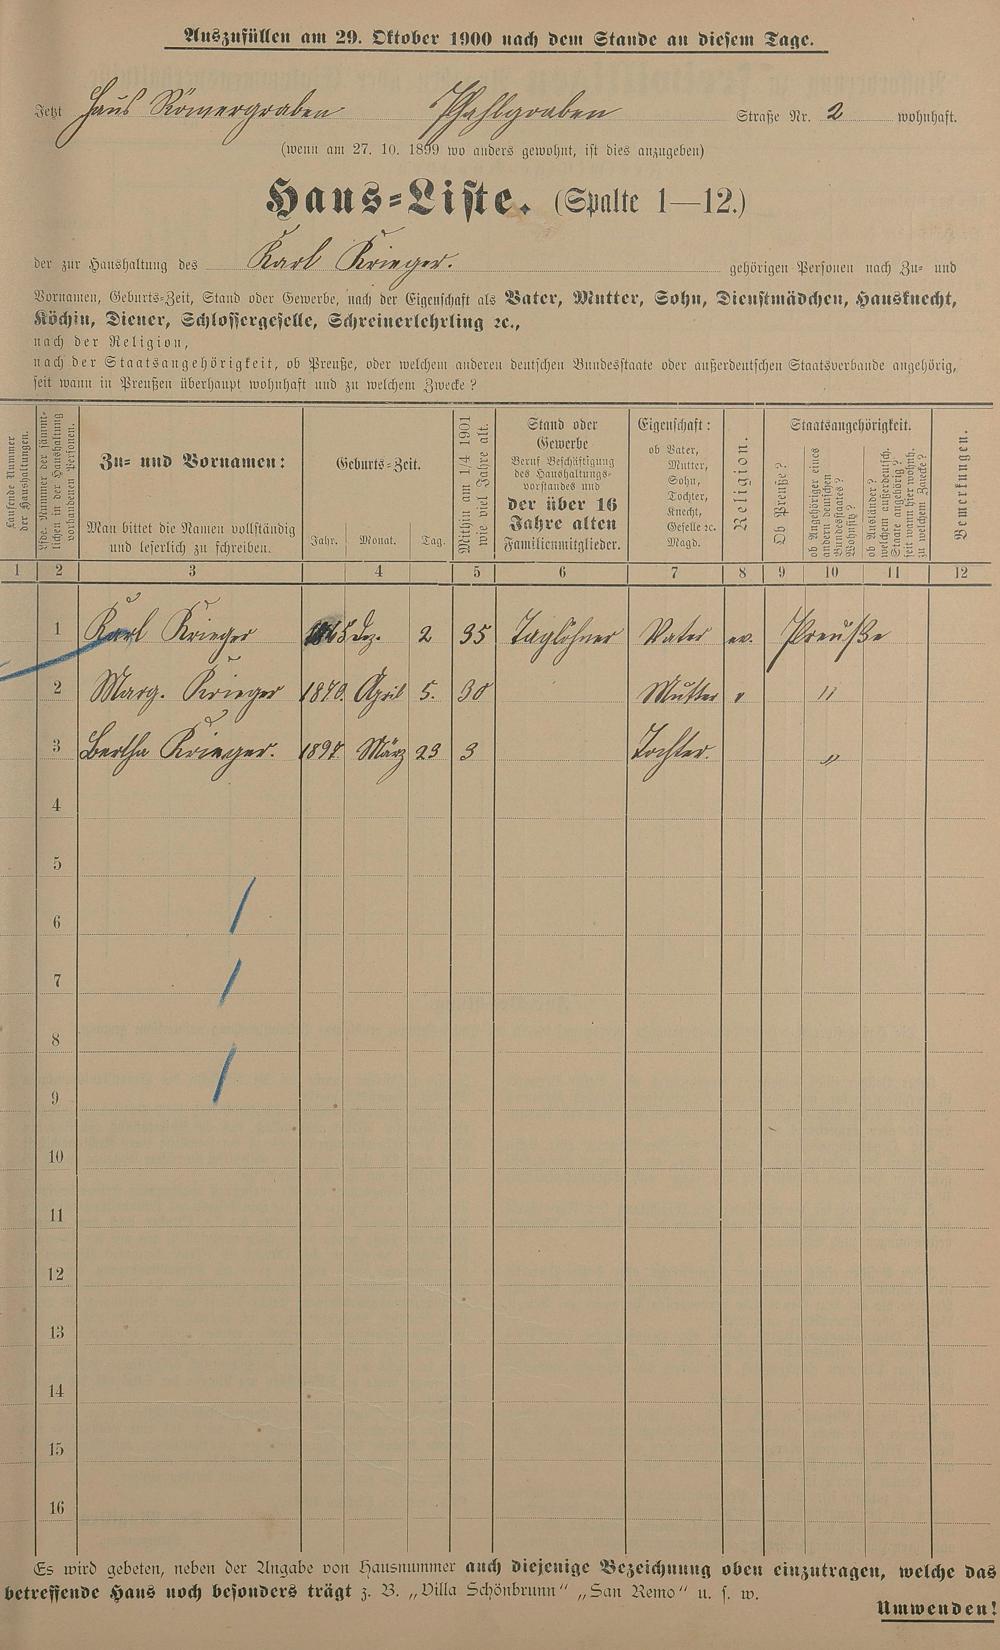 Auszufüllen am 29. Oktober 1900 nach dem Stande an diesem Tage.
Jetzt Haus Römergraben Pfahlgraben Straße Nr. 2 wohnhaft.
(wenn am 27. 10. 1899 wo anders gewohnt, ist dies anzugeben)
Haus-Liste. (Spalte 1—12.)
der zur Haushaltung des Karl Krieger. gehörigen Personen nach Zu- und
Vornamen, Geburts-Zeit, Stand oder Gewerbe, nach der Eigenschaft als Vater, Mutter, Sohn, Dienstmädchen, Hausknecht,
Köchin, Diener, Schlossergeselle, Schreinerlehrling ꝛc.,
nach der Religion,
nach der Staatsangehörigkeit, ob Preuße, oder welchem anderen deutschen Bundesstaate oder außerdeutschen Staatsverbande angehörig,
seit wann in Preußen überhaupt wohnhaft und zu welchem Zwecke?
Laufende Nummer
der Haushaltungen.
Lfde. Nummer der sämmt-
lichen in der Haushaltung
vorhandenen Personen.
Zu- und Vornamen:
Man bittet die Namen vollständig
und leserlich zu schreiben.
Geburts-Zeit.
Jahr. Monat. Tag.
Mithin am 1/4 1901
wie viel Jahre alt.
Stand oder
Gewerbe
Beruf Beschäftigung
des Haushaltungs-
vorstandes und
der über 16
Jahre alten
Familienmitglieder.
Eigenschaft:
ob Vater,
Mutter,
Sohn,
Tochter,
Knecht,
Geselle ꝛc.
Magd.
Religion.
Staatsangehörigkeit.
Ob Preuße?
ob Angehöriger eines
andern deutschen
Bundesstaates?
Wohnsitz?
ob Ausländer?
welchem außerdeutsch.
Staate angehörig?
seit wann hier wohnh.
zu welchem Zwecke?
Bemerkungen.
1 2 3 4 5 6 7 8 9 10 11 12
1 Karl Krieger Dez. 2 35 Taglöhner Vater ev. Preuße
2 Marg. Krieger 1870. April 5. 30 Mutter " "
3 Bertha Krieger. 1897. März 23 3 Tochter. "
4
5
6
7
8
9
10
11
12
13
14
15
16
Es wird gebeten, neben der Angabe von Hausnummer auch diejenige Bezeichnung oben einzutragen, welche das
betreffende Haus noch besonders trägt z. B. „Villa Schönbrunn" „San Remo" u. s. w.
Umwenden!